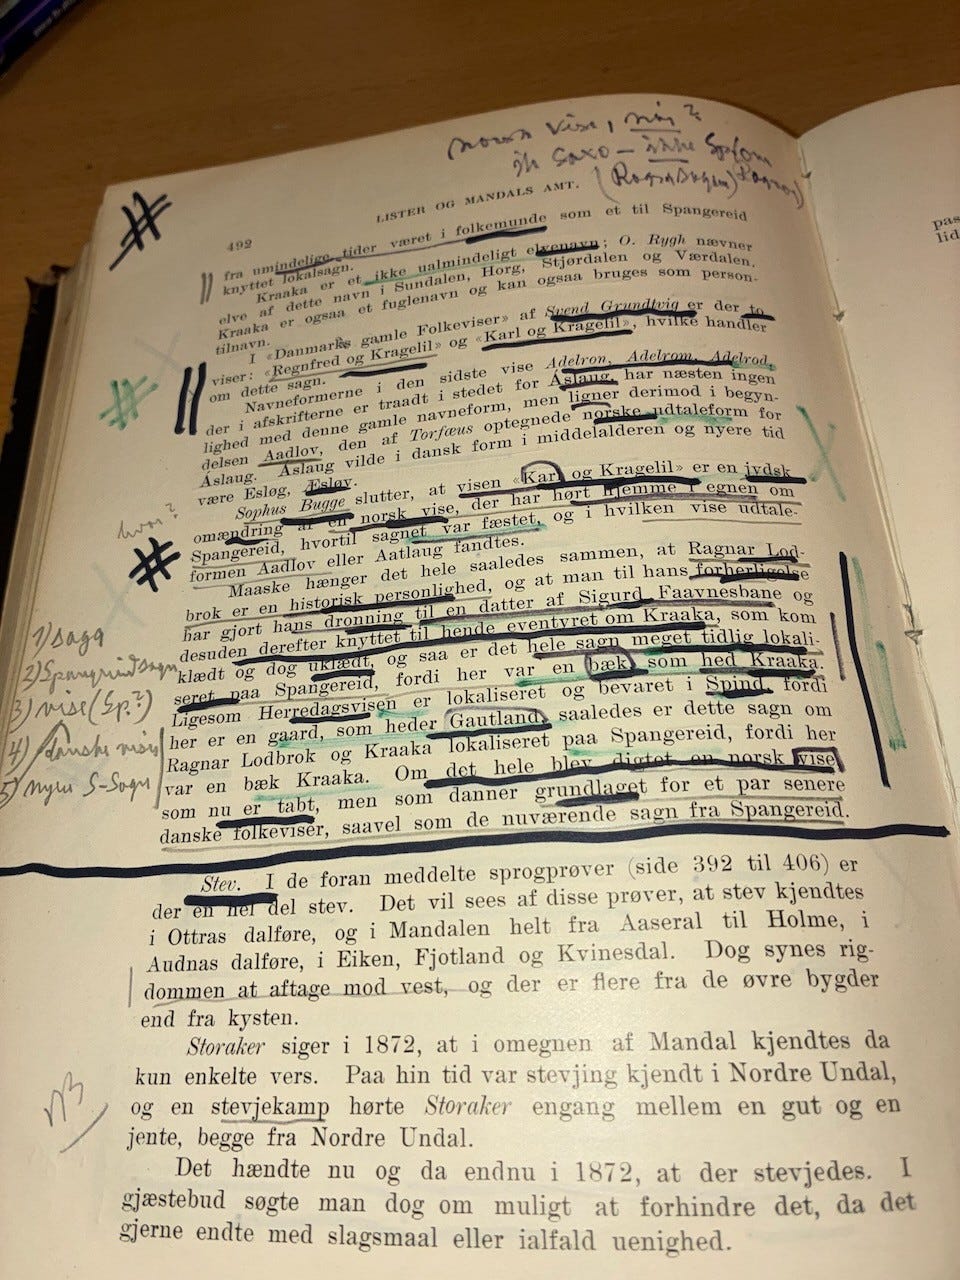 norsk vise, når?
ik Saxo – ikke Spfom
(Ragnar
LISTER OG MANDALS AMT.
492
fra umindelige tider været i folkemunde som et til Spangereid
knyttet lokalsagn.
Kraaka er et ikke ualmindeligt elvenavn; O. Rygh nævner
elve af dette navn i Sundalen, Horg, Stjørdalen og Værdalen.
Kraaka er ogsaa et fuglenavn og kan ogsaa bruges som person-
tilnavn.
I «Danmarks gamle Folkeviser» af Svend Grundtvig er der to
viser: «Regnfred og Kragelil» og «Karl og Kragelil», hvilke handler
om dette sagn.
Navneformerne i den sidste vise Adelron, Adelrom, Adelrod,
der i afskrifterne er traadt i stedet for Áslaug, har næsten ingen
lighed med denne gamle navneform, men ligner derimod i begyn-
delsen Aadlov, den af Torfæus optegnede norske udtaleform for
Áslaug. Áslaug vilde i dansk form i middelalderen og nyere tid
være Esløg, Æsløv.
Sophus Bugge slutter, at visen «Karl og Kragelil» er en jydsk
omændring af en norsk vise, der har hørt hjemme i egnen om
Spangereid, hvortil sagnet var fæstet, og i hvilken vise udtale-
formen Aadlov eller Aatlaug fandtes.
Maaske hænger det hele saaledes sammen, at Ragnar Lod-
brok er en historisk personlighed, og at man til hans forherligelse
har gjort hans dronning til en datter af Sigurd Faavnesbane og
desuden derefter knyttet til hende eventyret om Kraaka, som kom
klædt og dog uklædt, og saa er det hele sagn meget tidlig lokali-
seret paa Spangereid, fordi her var en bæk som hed Kraaka.
Ligesom Herredagsvisen er lokaliseret og bevaret i Spind, fordi
her er en gaard, som heder Gautland, saaledes er dette sagn om
Ragnar Lodbrok og Kraaka lokaliseret paa Spangereid, fordi her
var en bæk Kraaka. Om det hele blev digtet en norsk vise
som nu er tabt, men som danner grundlaget for et par senere
danske folkeviser, saavel som de nuværende sagn fra Spangereid.
hvor?
1) saga
2) Spangreidsagn
3) vise (Sp.?)
4) danske viser
5) nyere S-Sagn
Stev. I de foran meddelte sprogprøver (side 392 til 406) er
der en hel del stev. Det vil sees af disse prøver, at stev kjendtes
i Ottras dalføre, og i Mandalen helt fra Aaseral til Holme, i
Audnas dalføre, i Eiken, Fjotland og Kvinesdal. Dog synes rig-
dommen at aftage mod vest, og der er flere fra de øvre bygder
end fra kysten.
Storaker siger i 1872, at i omegnen af Mandal kjendtes da
kun enkelte vers. Paa hin tid var stevjing kjendt i Nordre Undal,
og en stevjekamp hørte Storaker engang mellem en gut og en
jente, begge fra Nordre Undal.
Det hændte nu og da endnu i 1872, at der stevjedes. I
gjæstebud søgte man dog om muligt at forhindre det, da det
gjerne endte med slagsmaal eller ialfald uenighed.
NB
pas
lid